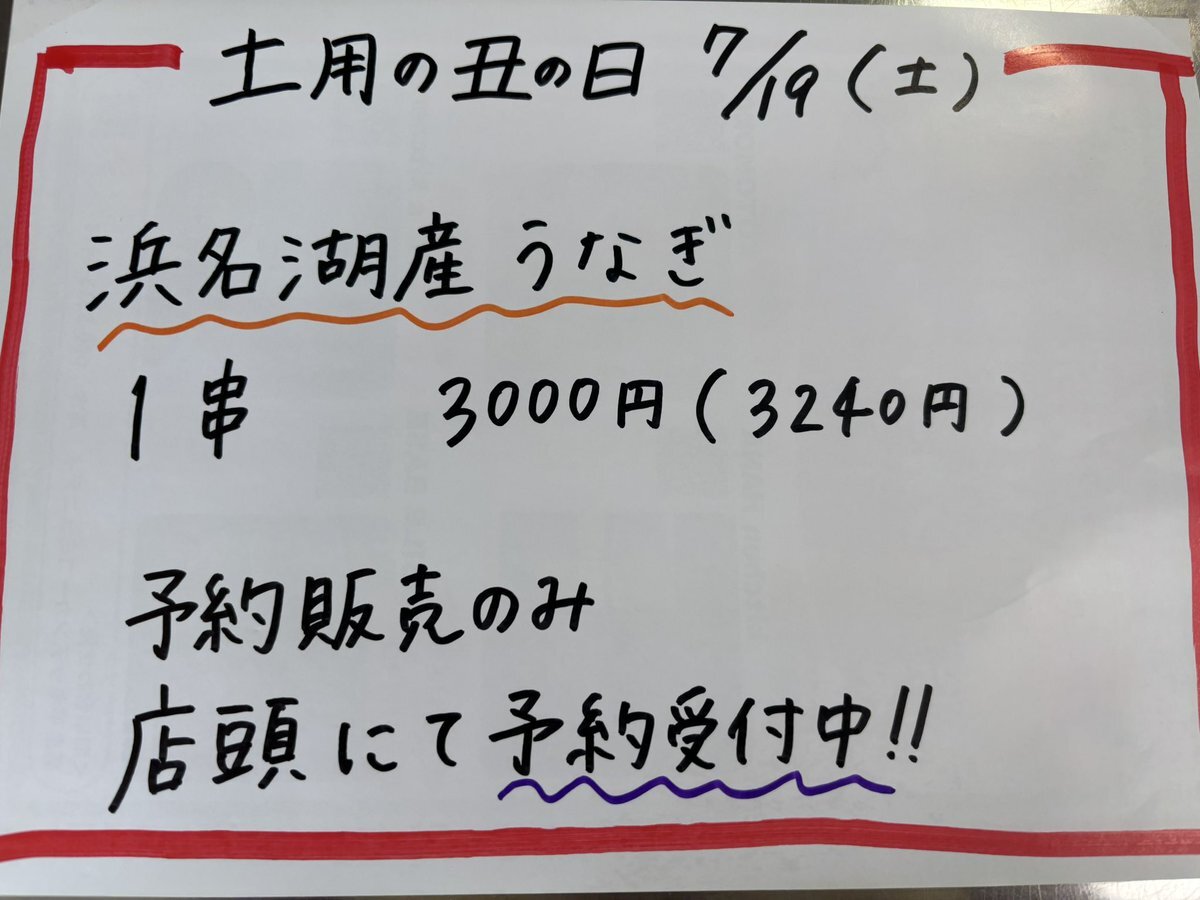 土用の丑の日 7/19(土)
浜名湖産 うなぎ
1串 3000円(3240円)
予約販売のみ
店頭にて予約受付中!!